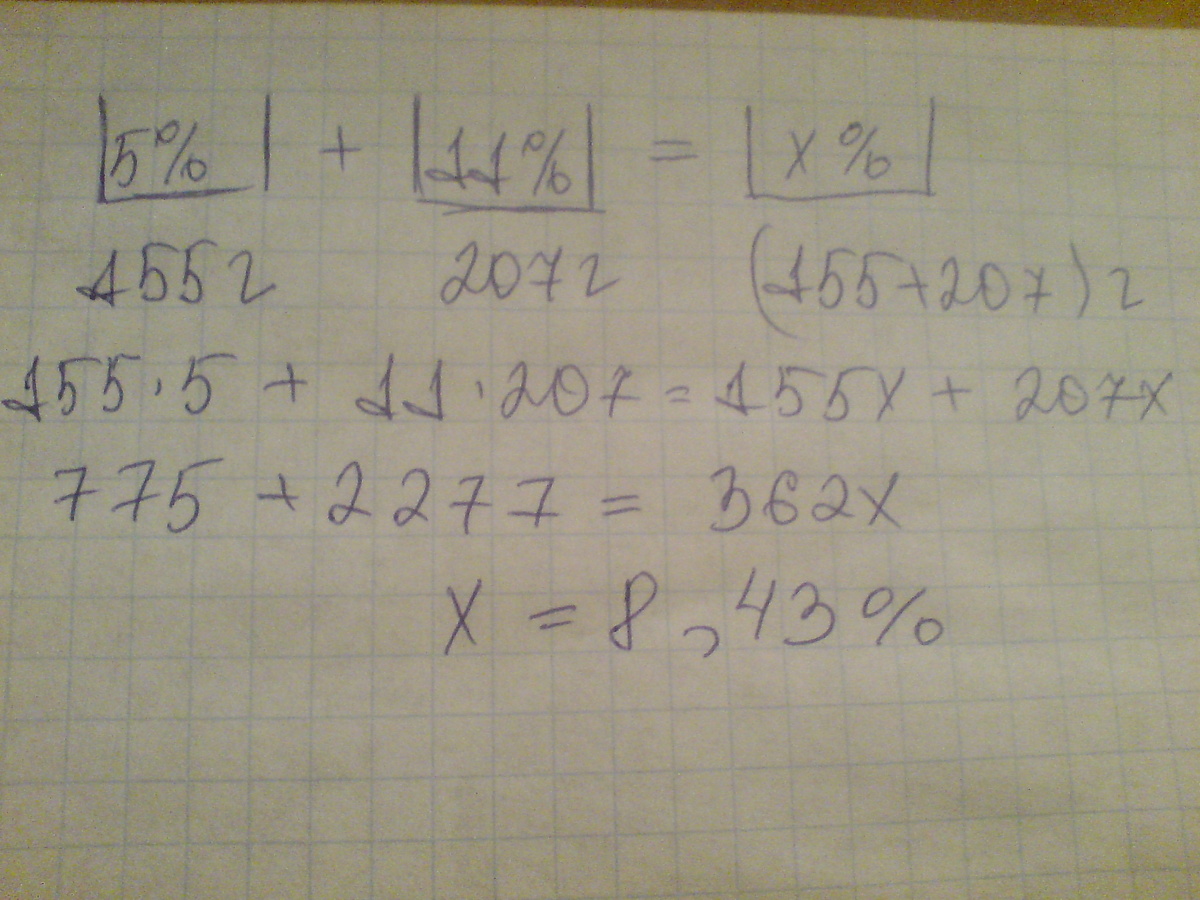 5% + 11% = x%
155г 207г (155+207)г
155·5 + 11·207 = 155x + 207x
775 + 2277 = 362x
x = 8,43%